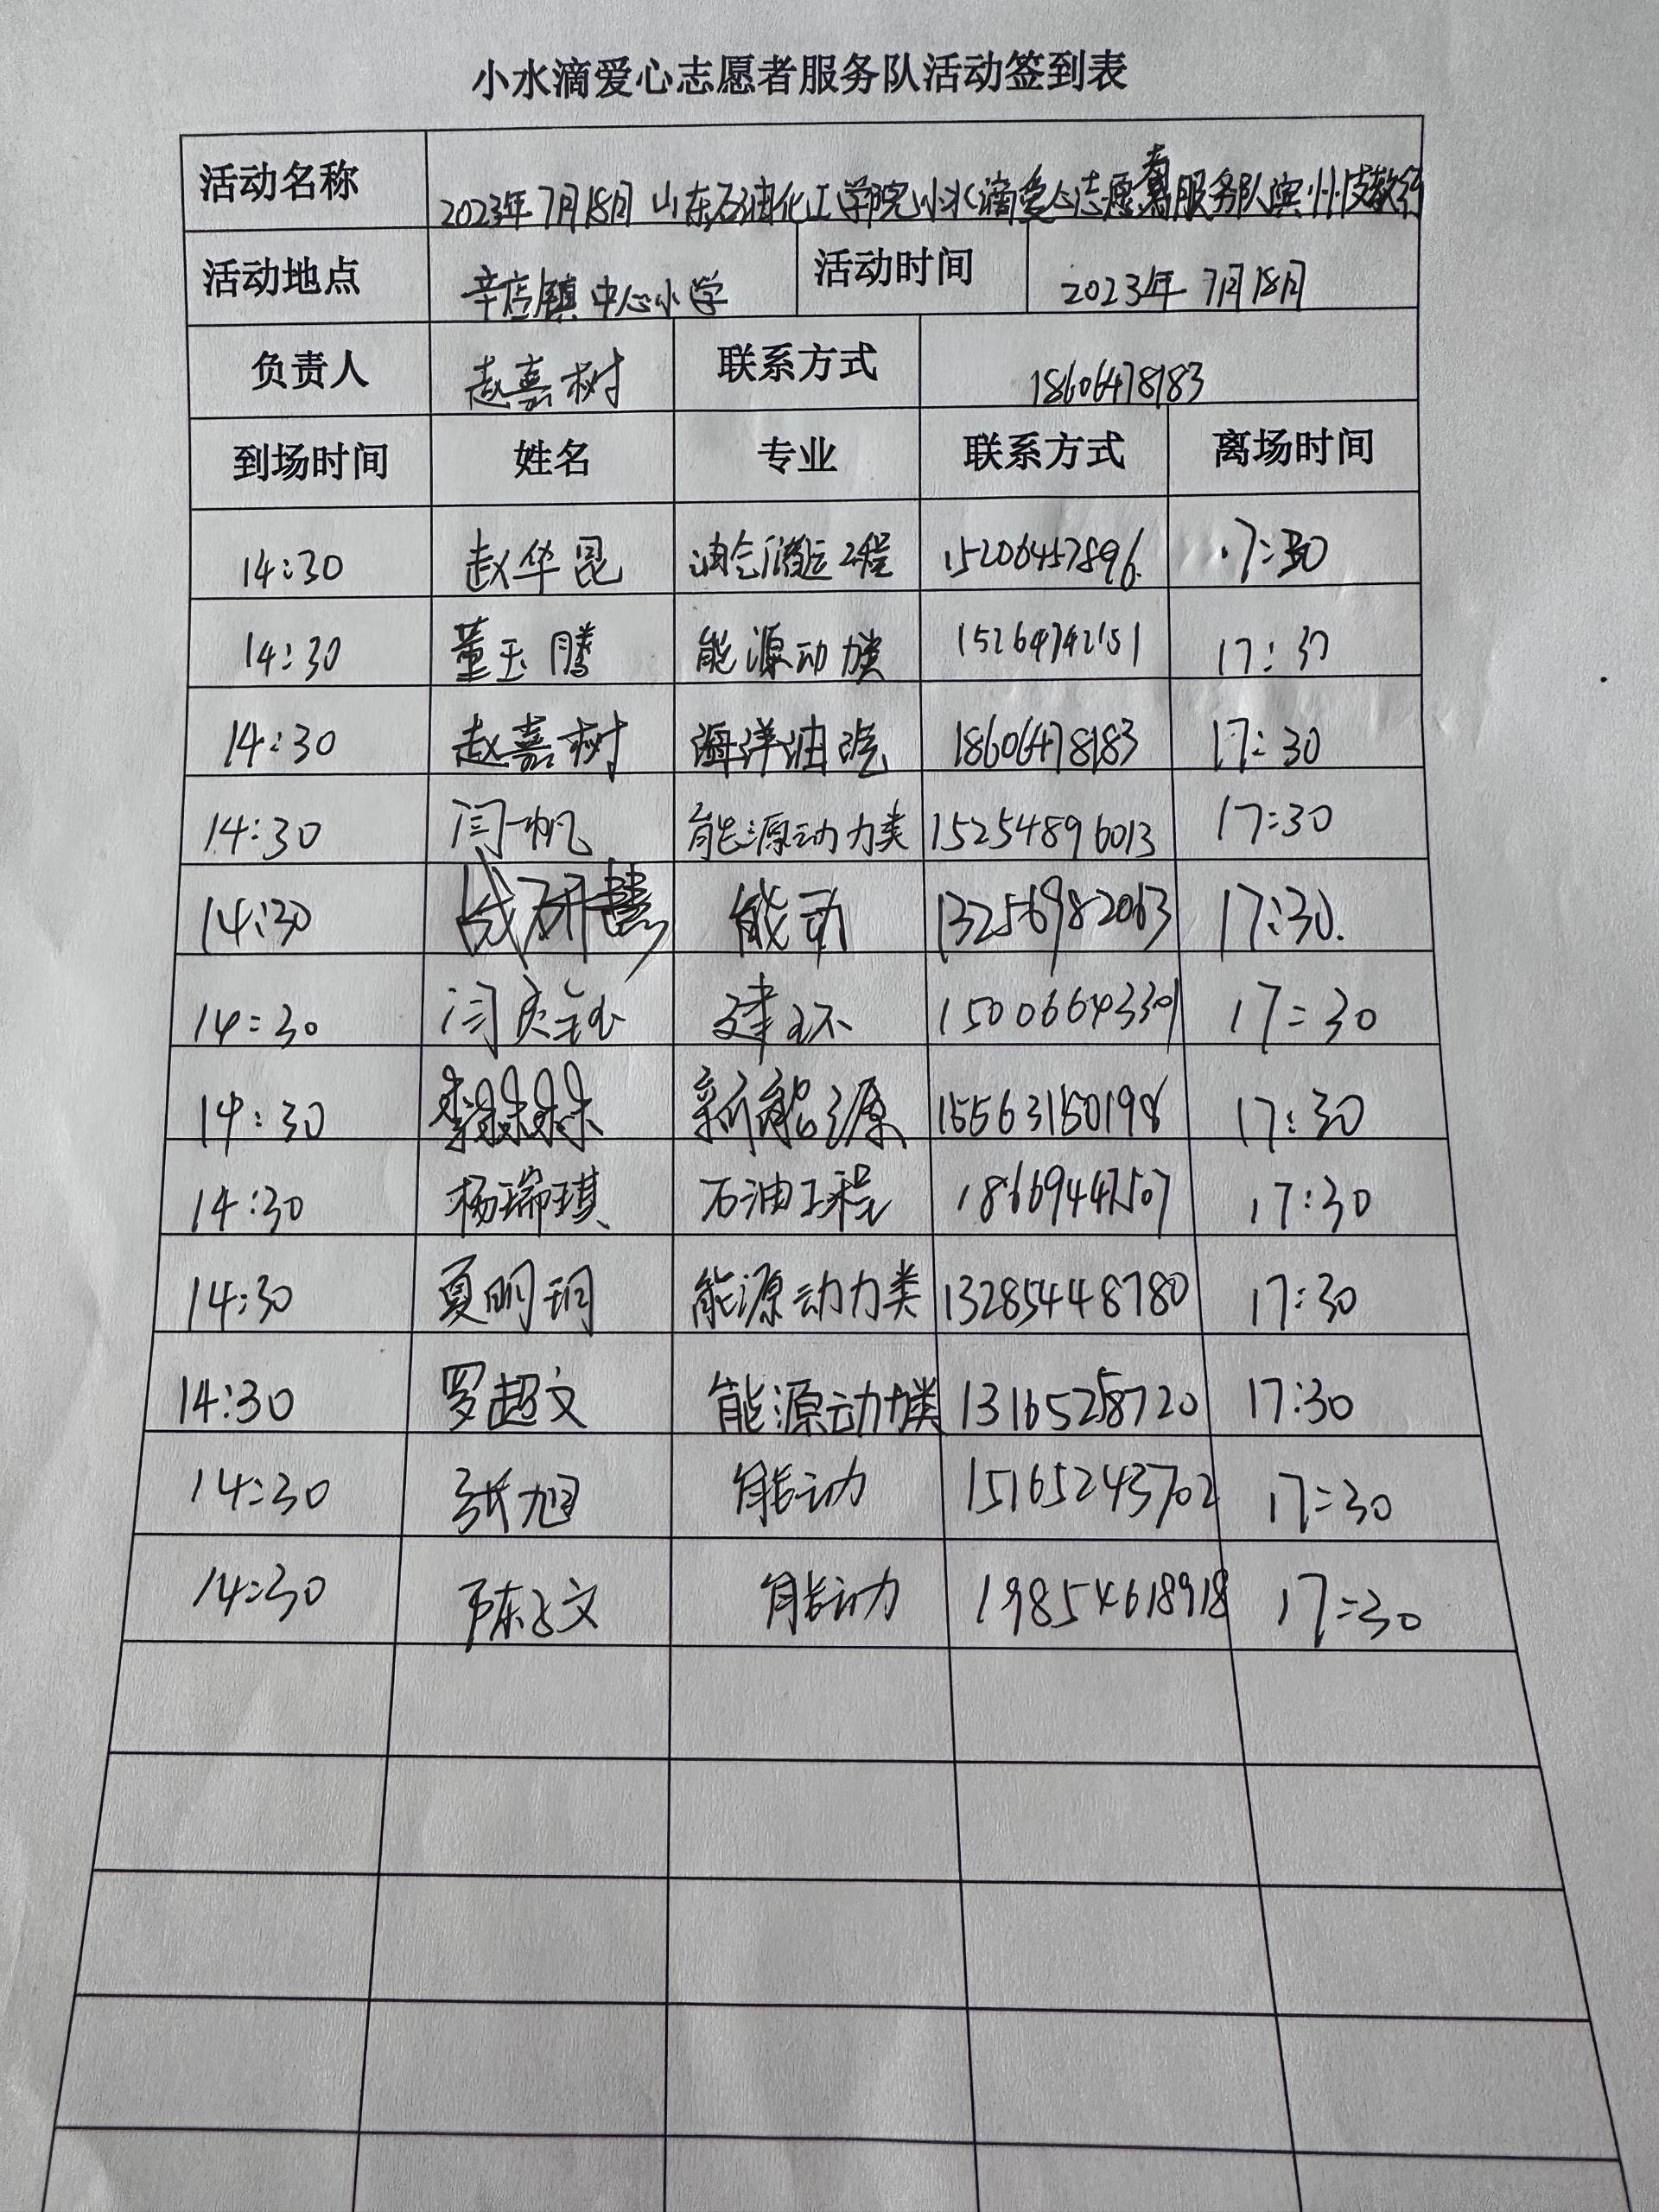 小水滴爱心志愿者服务队活动签到表
活动名称 2023年7月18日 山东石油化工学院小水滴爱心志愿者服务队滨州支教行
活动地点 辛店镇中心小学 活动时间 2023年7月18日
负责人 赵嘉树 联系方式 18606478183
到场时间 姓名 专业 联系方式 离场时间
14:30 赵华昆 油气储运工程 15206457896 17:30
14:30 董玉腾 能源动力类 15264742151 17:30
14:30 赵嘉树 海洋油气 18606478183 17:30
14:30 闫一帆 能源动力类 15254896013 17:30
14:30 战研慧 能动 13256982063 17:30.
14:30 闫 建环 15006643301 17:30
14:30 李 新能源 15563150198 17:30
14:30 杨瑞琪 石油工程 18669447507 17:30
14:30 夏明珂 能源动力类 13285448780 17:30
14:30 罗超文 能源动力类 13165258720 17:30
14:30 张旭 能动 15165243702 17:30
14:30 陈子文 能动 19854618918 17:30